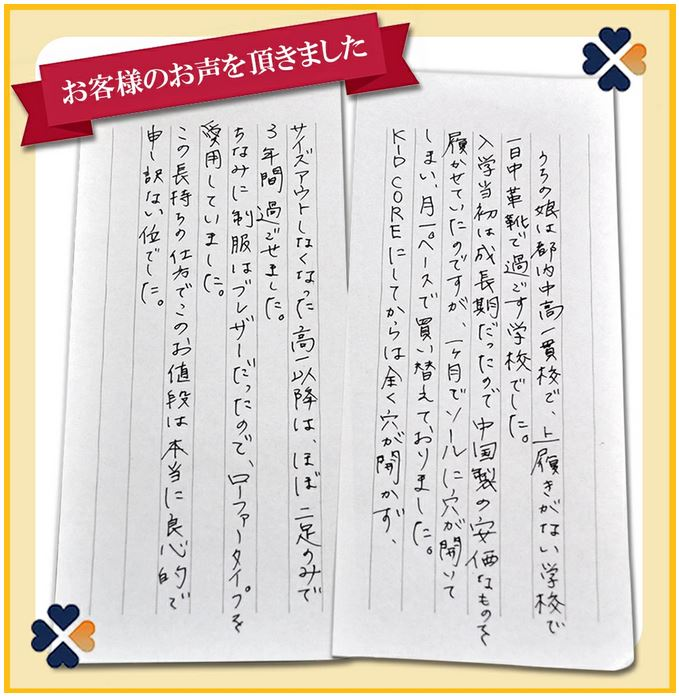 お客様のお声を頂きました
うちの娘は都内中高一貫校で、上履きがない学校で
一日中革靴で過ごす学校でした。
入学当初は成長期だったので中国製の安価なものを
履かせていたのですが、一ヶ月でソールに穴が開いて
しまい、月一ペースで買い替えておりました。
K-D COREにしてからは全く穴が開かず、
サイズアウトしなくなった高一以降は、ほぼ二足のみで
3年間過ごせました。
ちなみに制服はブレザーだったので、ローファータイプを
愛用していました。
この長持ちの仕方でこのお値段は本当に良心的で
申し訳ない位でした。